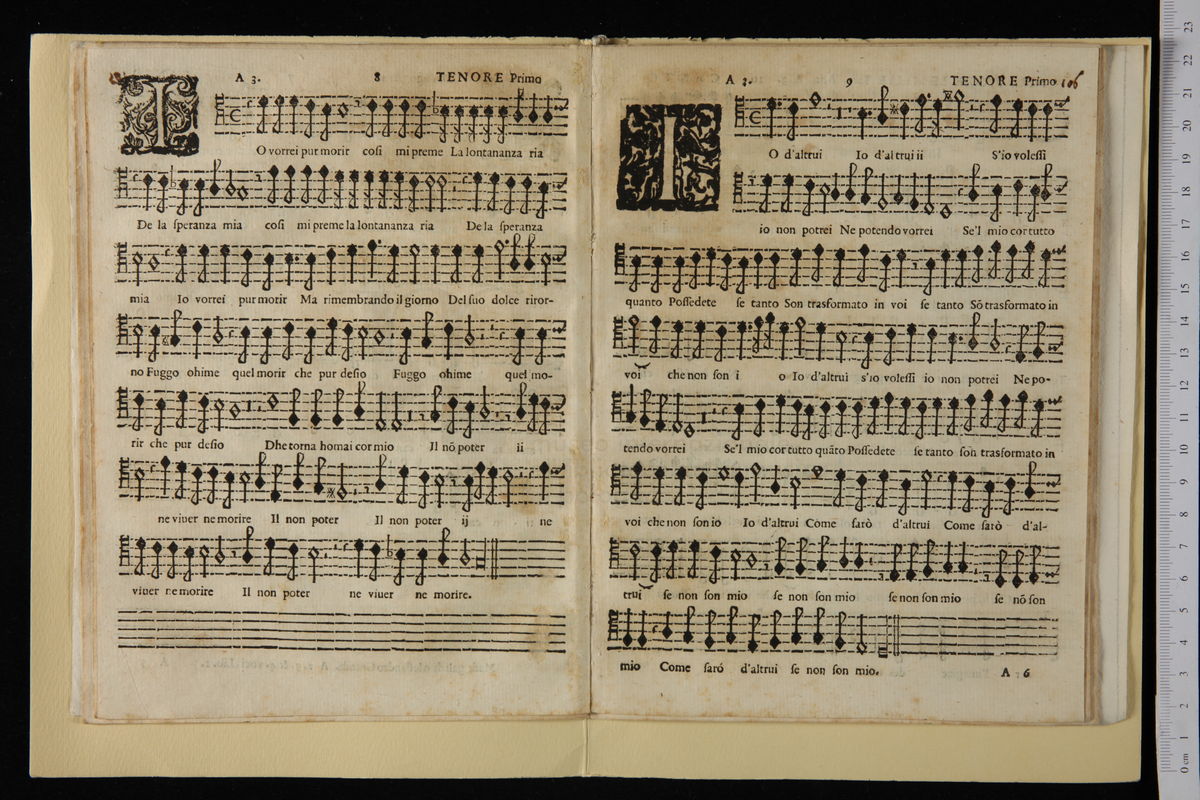 A 3. 8 TENORE Primo
I
O vorrei pur morir cosi mi preme La lontananza ria
De la speranza mia cosi mi preme la lontananza ria De la speranza
mia Io vorrei pur morir Ma rimembrando il giorno Del suo dolce ritor-
no Fuggo ohime quel morir che pur desio Fuggo ohime quel mo-
rir che pur desio Dhe torna homai cor mio Il nō poter ii
ne viuer ne morire Il non poter Il non poter ij ne
viuer ne morire Il non poter ne viuer ne morire.
A 3. 9 TENORE Primo 106
I
O d'altrui Io d'altrui ii S'io volessi
io non potrei Ne potendo vorrei Se'l mio cor tutto
quanto Possedete se tanto Son trasformato in voi se tanto Sō trasformato in
voi che non son i o Io d'altrui s'io volessi io non potrei Ne po-
tendo vorrei Se'l mio cor tutto quāto Possedete se tanto son trasformato in
voi che non son io Io d'altrui Come sarò d'altrui Come sarò d'al-
trui se non son mio se non son mio se non son mio se nō son
mio Come saró d'altrui se non son mio.
A 6
0 cm 1 2 3 4 5 6 7 8 9 10 11 12 13 14 15 16 17 18 19 20 21 22 23